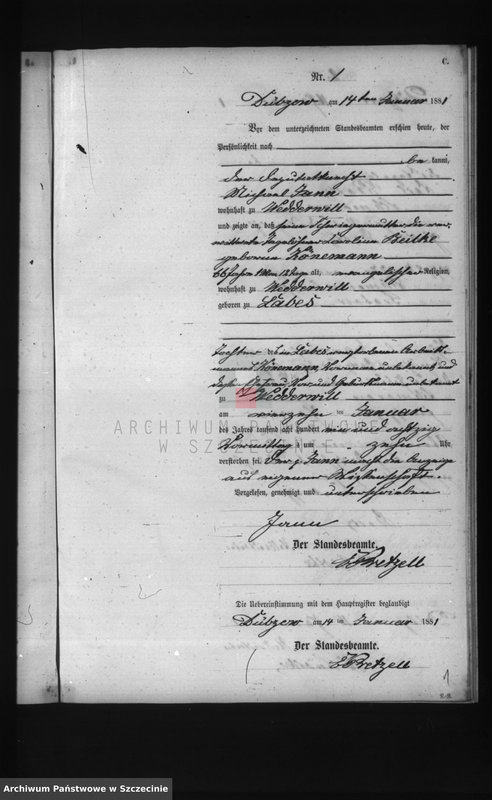 C.
Nr. 1
Dübzow am 14ten Januar 1881
Vor dem unterzeichneten Standesbeamten erschien heute, der
Persönlichkeit nach
be kannt,
der Deputatknecht
Michael Jann
wohnhaft zu Wedderwill
und zeigte an, daß seine Schwiegermutter, die ver-
wittwete Tagelöhner Caroline Beilke
geborene Könemann
66 Jahre 1 Mon 12 Tage alt, evangelischer Religion,
wohnhaft zu Wedderwill
geboren zu Labes
Tochter des in Labes verstorbenen Arbeits-
mannes Könemann, Vorname unbekannt und
dessen Ehefrau, Vor- und Geburtsname unbekannt
zu Wedderwill
am vierzehn ten Januar
des Jahres tausend acht hundert ein und achtzig
Vormittags um zehn Uhr
verstorben sei. Der p. Jann macht die Anzeige
aus eigener Wissenschaft.
Vorgelesen, genehmigt und unterschrieben
Jann
Der Standesbeamte.
Pretzell
Die Uebereinstimmung mit dem Hauptregister beglaubigt
Dübzow am 14 ten Januar 1881
Der Standesbeamte.
Pretzell
1
ARCHIWUM PAŃSTWOWE
W SZCZECINIE
Archiwum Państwowe w Szczecinie